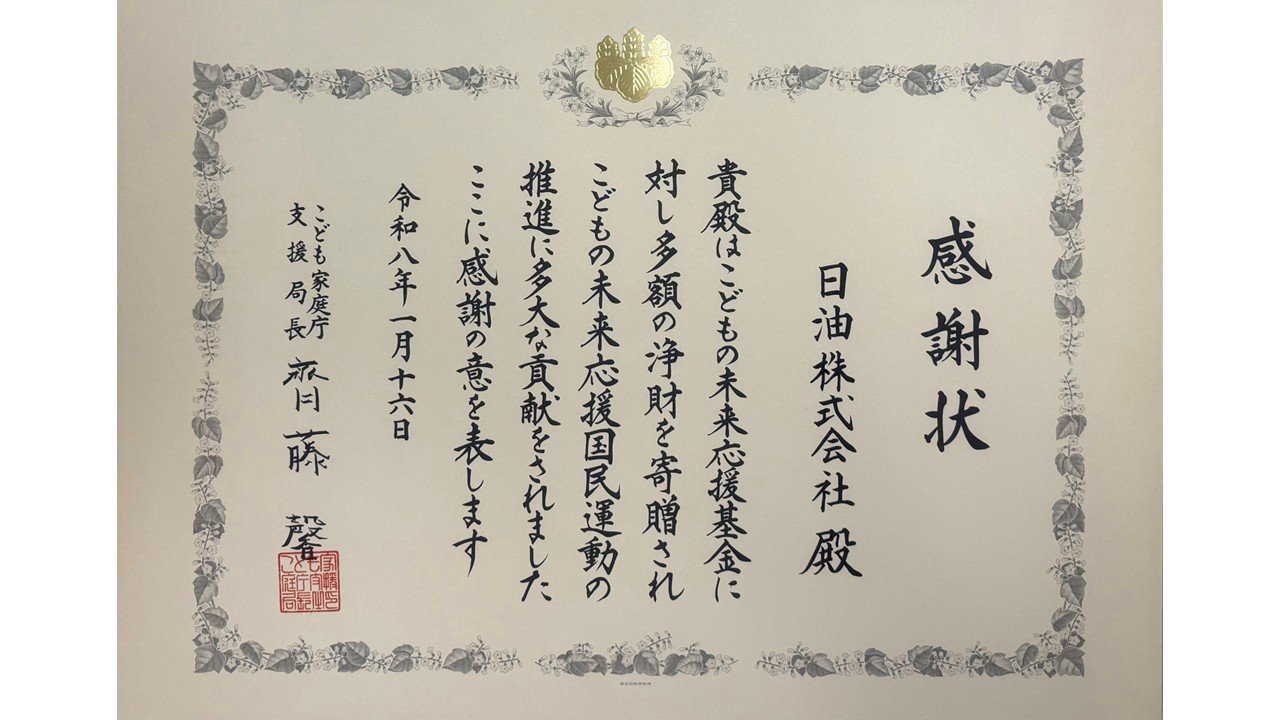 感謝状
日油株式会社 殿
貴殿はこどもの未来応援基金に
対し多額の浄財を寄贈され
こどもの未来応援国民運動の
推進に多大な貢献をされました
ここに感謝の意を表します
令和八年一月十六日
こども家庭庁
支援局長
齊藤 馨